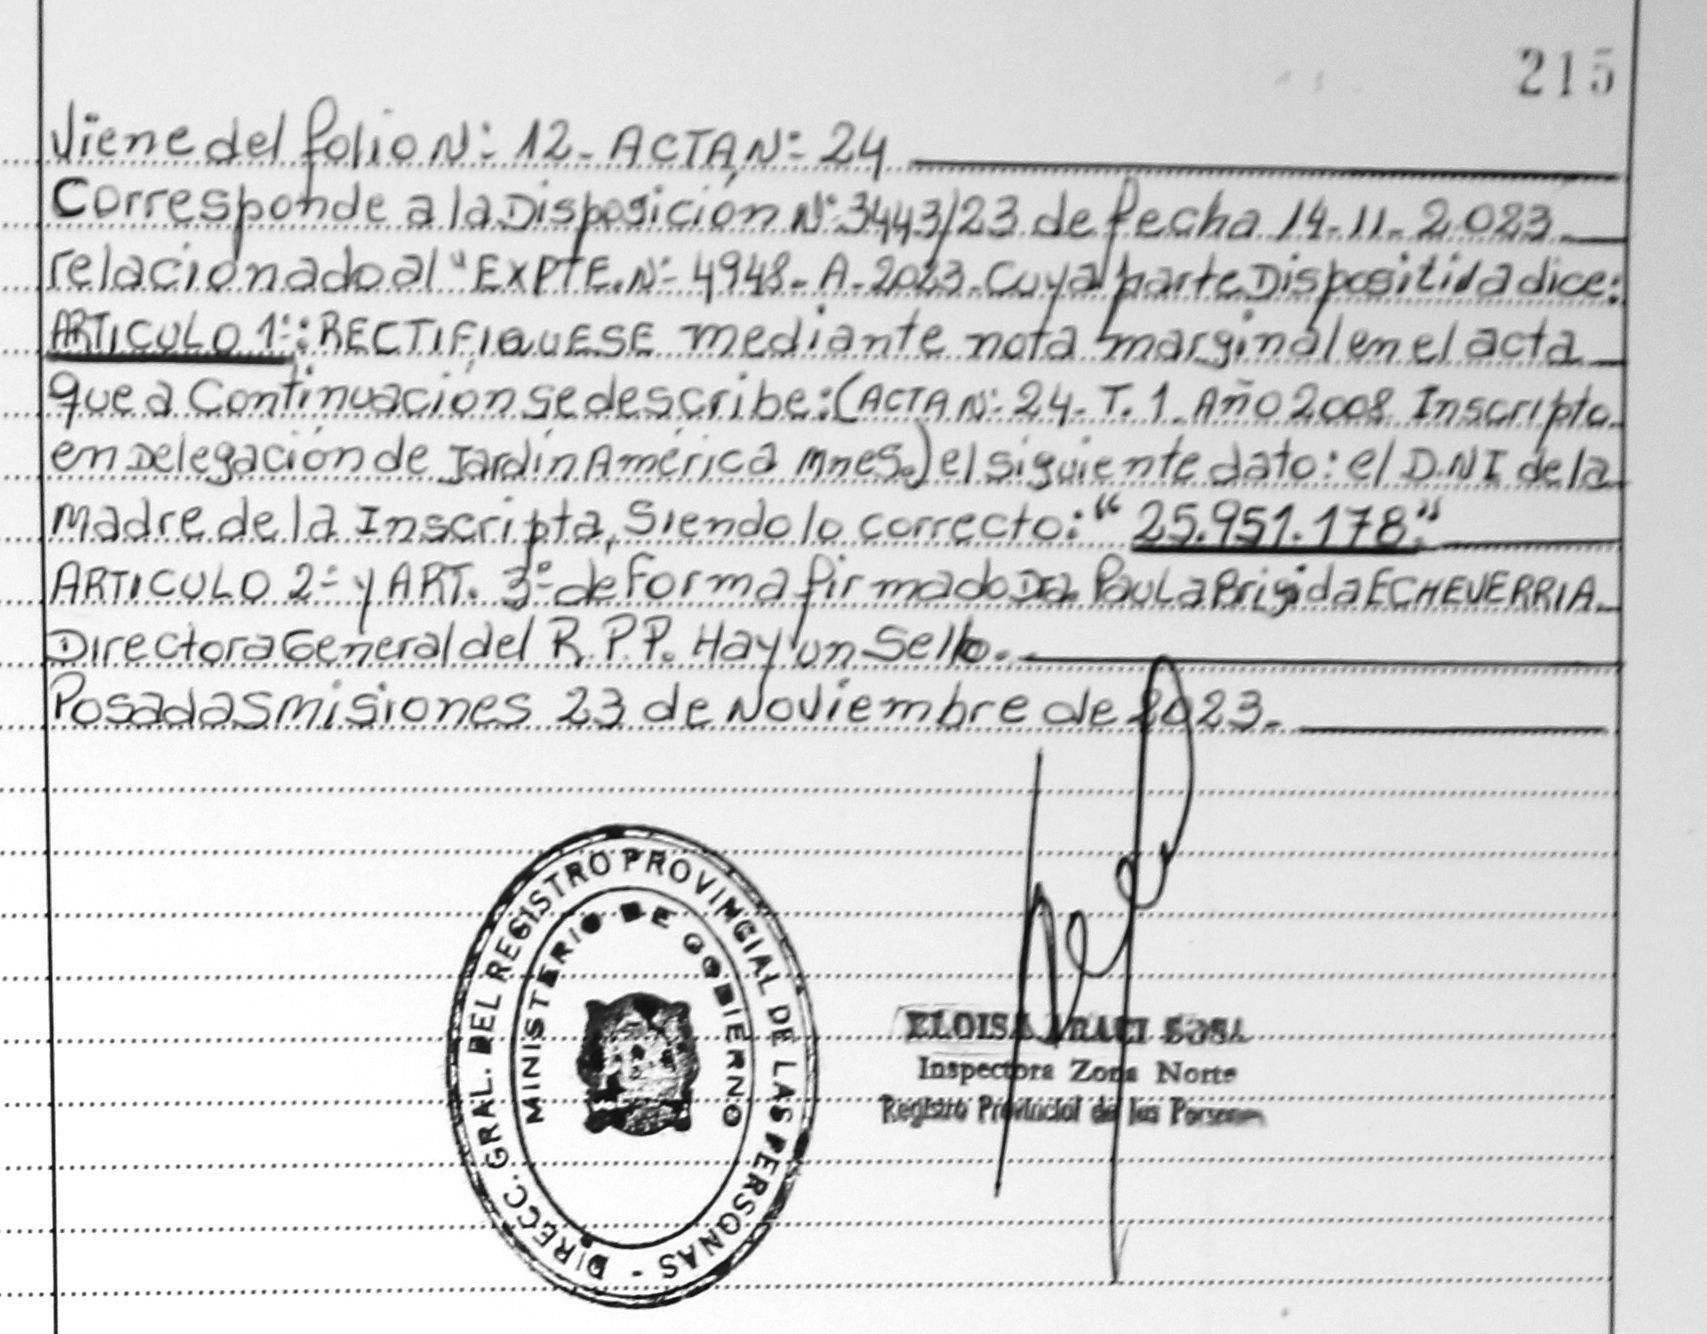 215
Viene del folio N°: 12- ACTA N°: 24
Corresponde a la Disposición N°: 3443/23 de fecha 14-11-2023
relacionado al "EXPTE. N°- 4948- A-2023. Cuya parte Dispositiva dice:
ARTICULO 1°: RECTIFÍQUESE mediante nota marginal en el acta
que a Continuación se describe: (ACTA N°: 24- T. 1. Año 2008 Inscripto
en Delegación de Jardín América Mnes.) el siguiente dato: el D.N.I de la
Madre de la Inscripta, Siendo lo correcto: "25.951.178."
ARTICULO 2° y ART. 3° de forma firmado Dra. Paula Brigida ECHEVERRIA.
Directora General del R.P.P. Hay un Sello.
Posadas Misiones 23 de Noviembre de 2023.
DIRECC. GRAL. DEL REGISTRO PROVINCIAL DE LAS PERSONAS -
MINISTERIO DE GOBIERNO
ELOISA ARACI SOSA
Inspectora Zona Norte
Registro Provincial de las Personas